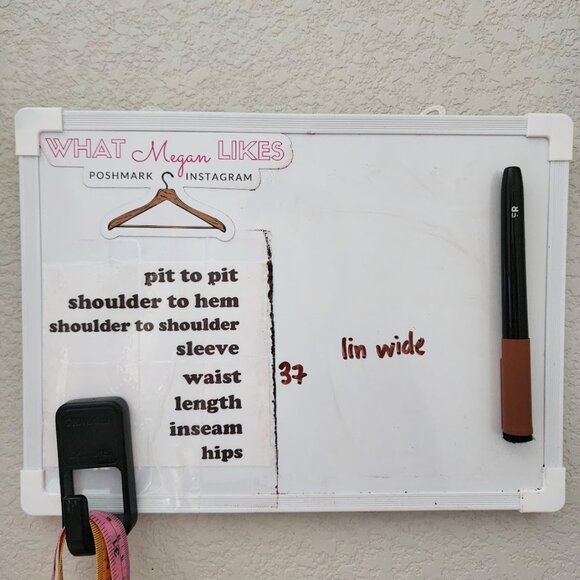 WHAT Megan LIKES
POSHMARK INSTAGRAM
pit to pit
shoulder to hem
shoulder to shoulder
sleeve
waist 37
length
inseam
hips
1in wide